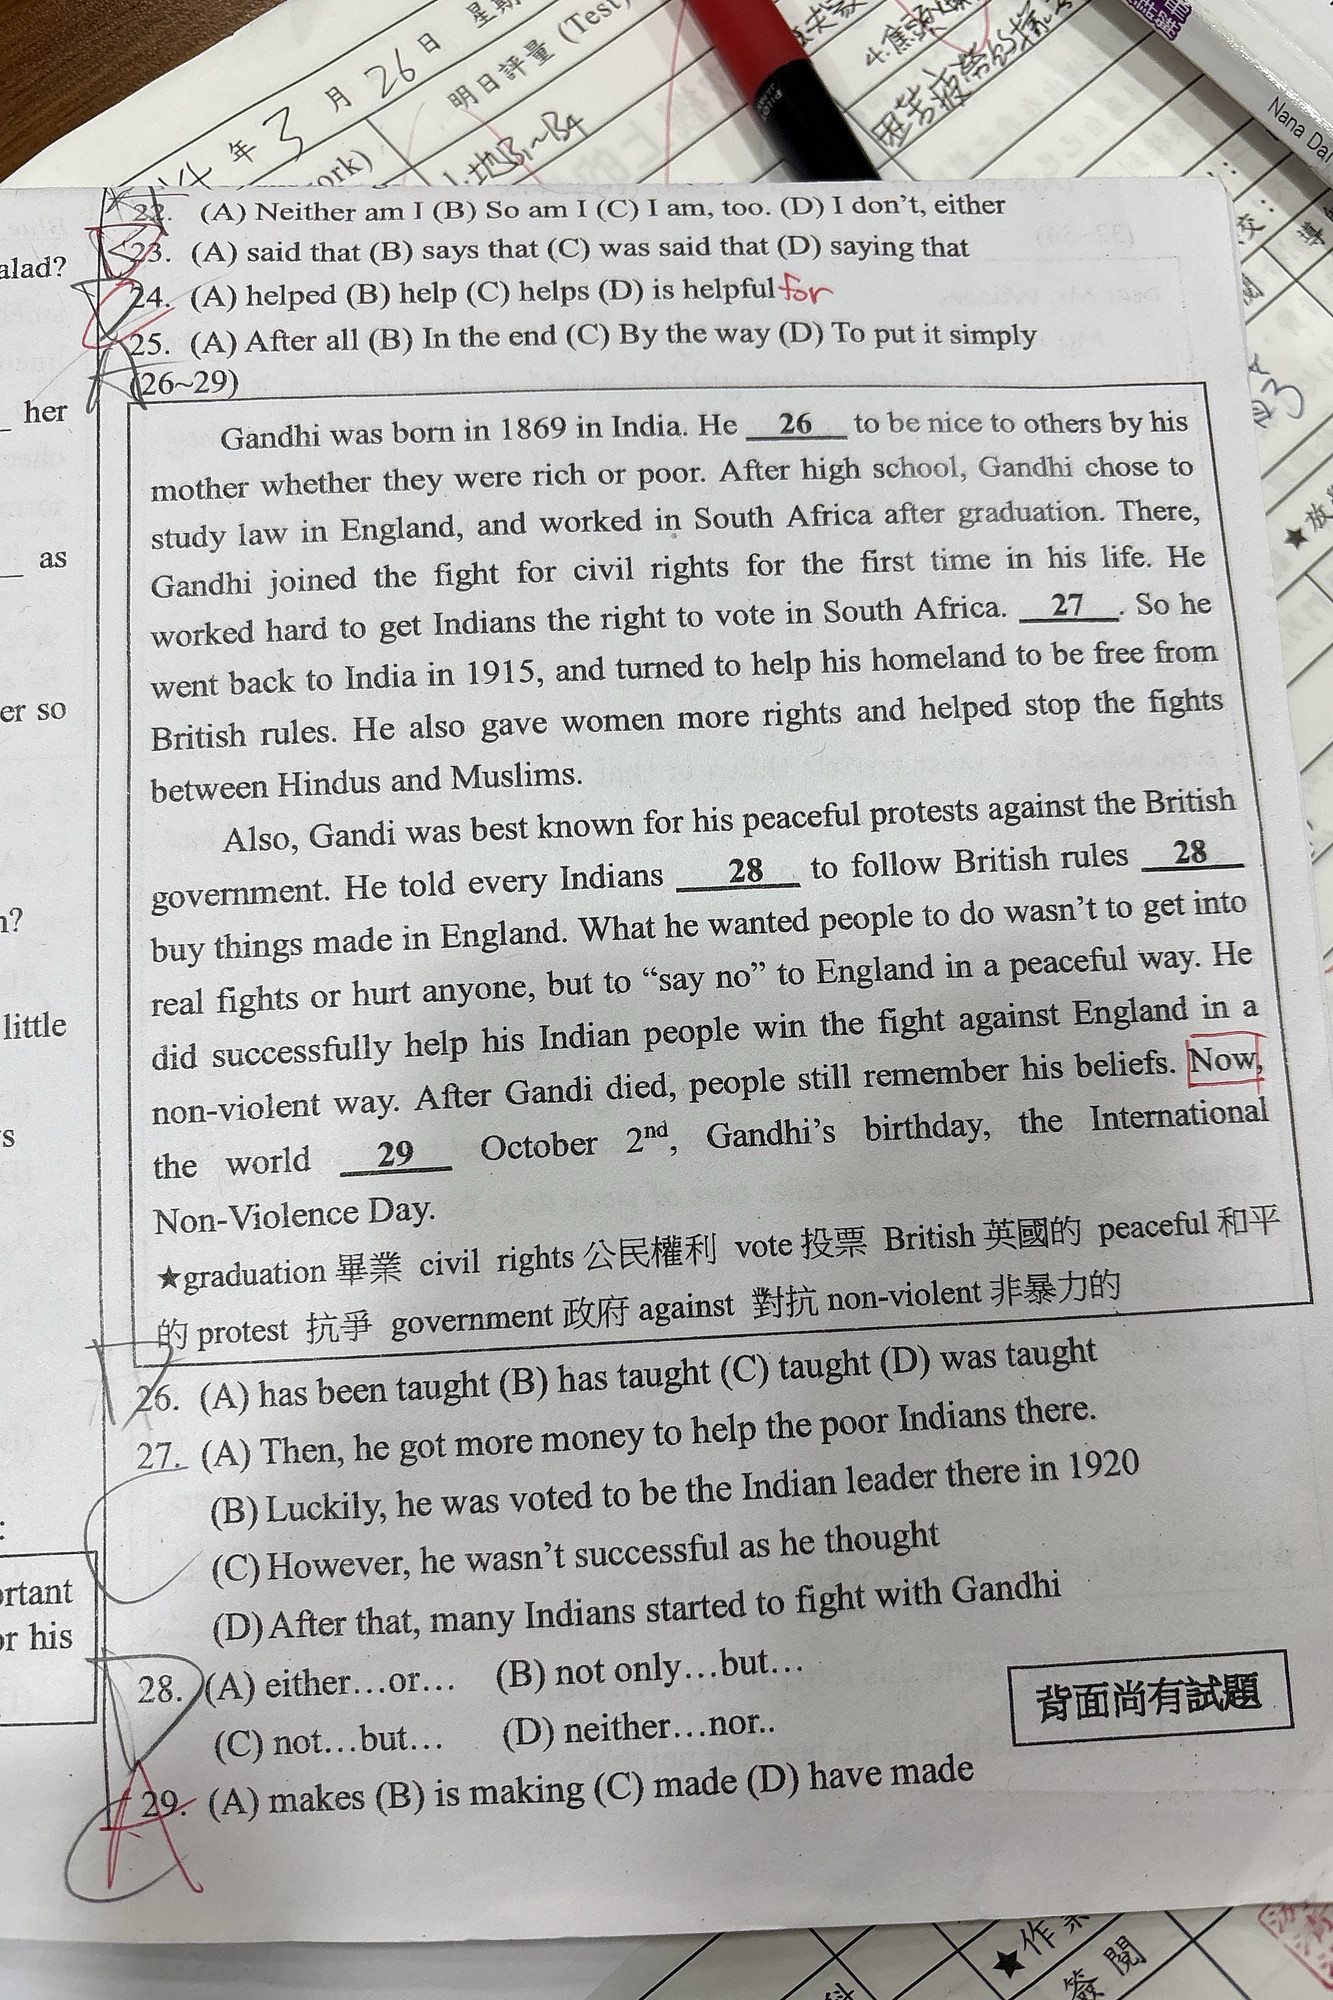 年 3 月 26 日 星期
明日評量 (Test)
ork)
1.地B1~B4
4.焦頭
Nana Da
22. (A) Neither am I (B) So am I (C) I am, too. (D) I don't, either
23. (A) said that (B) says that (C) was said that (D) saying that
24. (A) helped (B) help (C) helps (D) is helpful for
25. (A) After all (B) In the end (C) By the way (D) To put it simply
(26~29)
Gandhi was born in 1869 in India. He 26 to be nice to others by his
mother whether they were rich or poor. After high school, Gandhi chose to
study law in England, and worked in South Africa after graduation. There,
Gandhi joined the fight for civil rights for the first time in his life. He
worked hard to get Indians the right to vote in South Africa. 27 . So he
went back to India in 1915, and turned to help his homeland to be free from
British rules. He also gave women more rights and helped stop the fights
between Hindus and Muslims.
Also, Gandi was best known for his peaceful protests against the British
government. He told every Indians 28 to follow British rules 28
buy things made in England. What he wanted people to do wasn't to get into
real fights or hurt anyone, but to “say no” to England in a peaceful way. He
did successfully help his Indian people win the fight against England in a
non-violent way. After Gandi died, people still remember his beliefs. Now,
the world 29 October 2nd, Gandhi's birthday, the International
Non-Violence Day.
★graduation 畢業 civil rights 公民權利 vote 投票 British 英國的 peaceful 和平
的 protest 抗爭 government 政府 against 對抗 non-violent 非暴力的
26. (A) has been taught (B) has taught (C) taught (D) was taught
27. (A) Then, he got more money to help the poor Indians there.
(B) Luckily, he was voted to be the Indian leader there in 1920
(C) However, he wasn't successful as he thought
(D) After that, many Indians started to fight with Gandhi
28. (A) either…or… (B) not only…but…
(C) not…but… (D) neither…nor..
背面尚有試題
29. (A) makes (B) is making (C) made (D) have made
A
alad?
her
as
er so
?
little
s
:
rtant
or his
★作業
簽閱